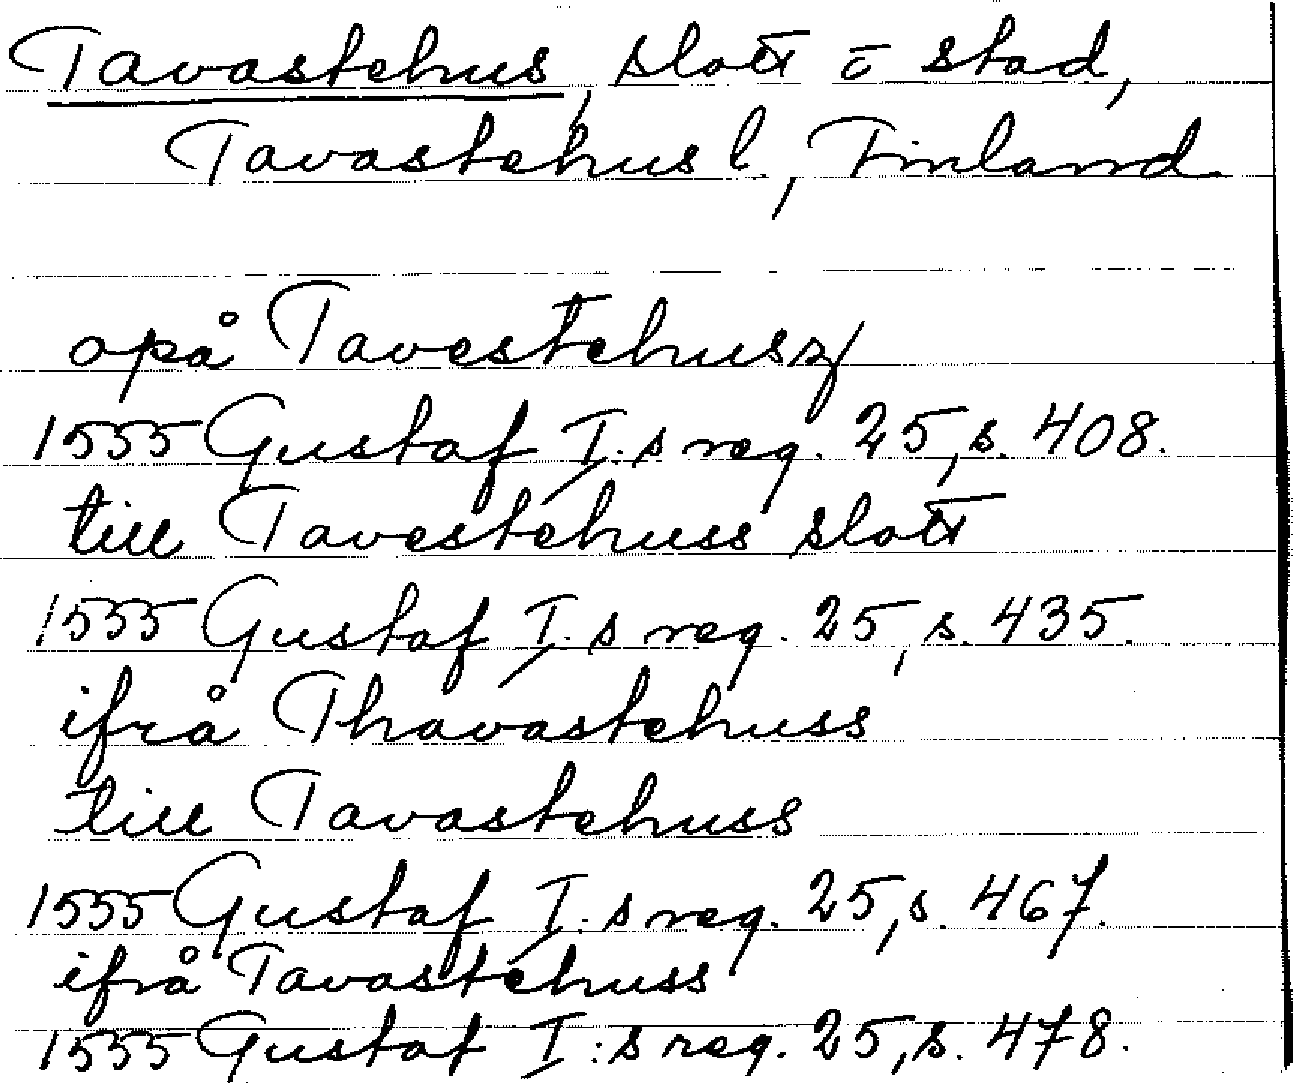 Tavastehus, slott o stad,
Tavastehus l., Finland
opå Tavestehusz
1555 Gustaf I:s reg. 25, s. 408.
till Tavestehuss slott
1555 Gustaf I:s reg. 25, s. 435.
ifrå Thavastehuss
till Tavastehuss
1555 Gustaf I:s reg. 25, s. 467.
ifrå Tavastehuss
1555 Gustaf I:s reg. 25, s. 478.